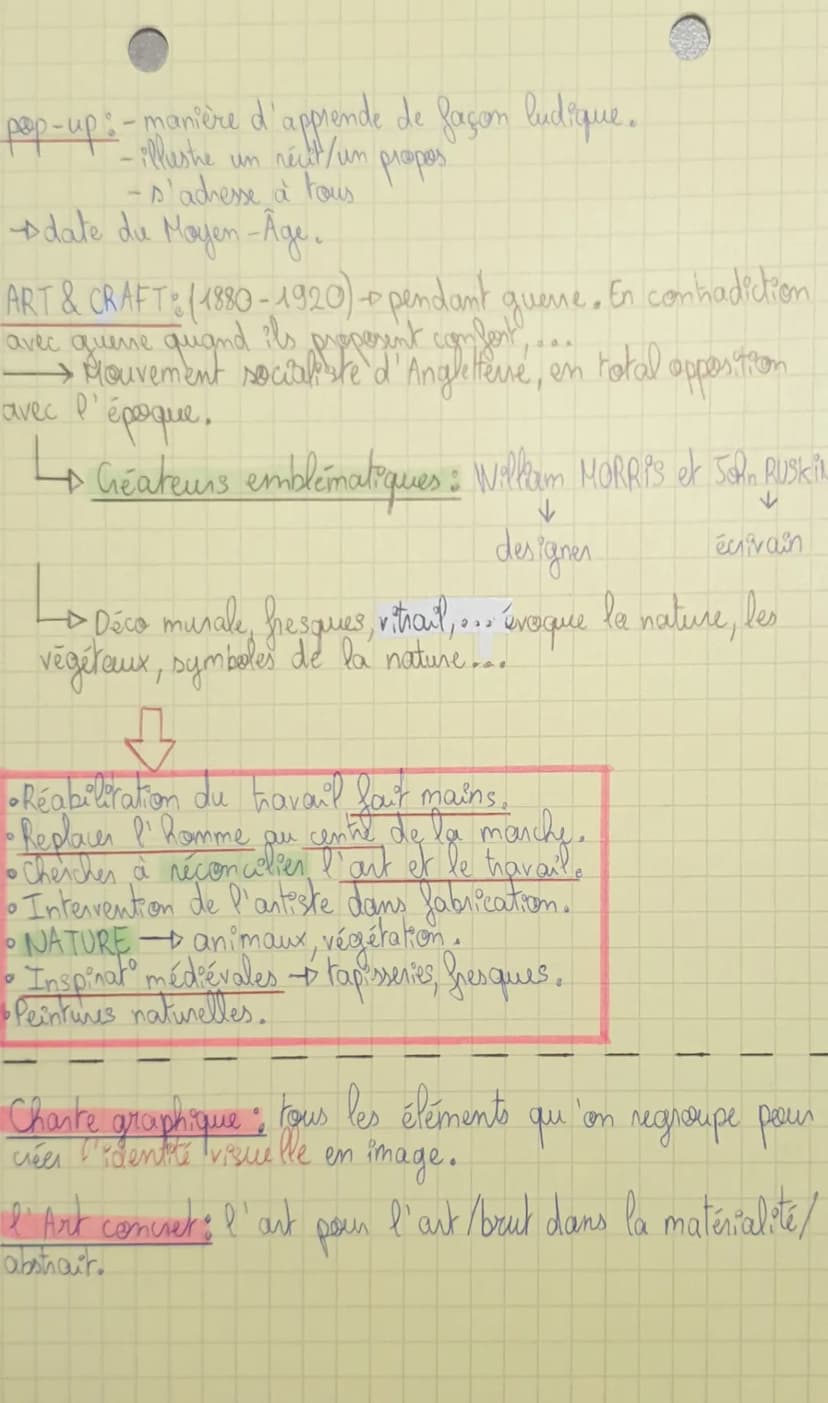 pop-up : - manière d'apprende de façon ludique.
- illustre un récit/un propos
- s'adresse à tous
→ date du Moyen-Âge.
ART & CRAFT : (1880-1920) → pendant guerre. En contradiction
avec guerre quand ils proposent confort, ...
→ Mouvement socialiste d'Angleterre, en total opposition
avec l'époque.
↳ Créateurs emblématiques : William MORRIS et John RUSKIN
↓ ↓
designer écrivain
↳ Déco murale, fresques, vitrail, ... évoque la nature, les
végétaux, symboles de la nature...
⇩
• Réabilitation du travail fait mains.
• Replacer l'homme au centre de la marche.
• Chercher à réconcilier l'art et le travail.
• Intervention de l'artiste dans fabrication.
• NATURE → animaux, végétation.
• Inspirat° médiévales → tapisseries, fresques.
• Peintures naturelles.
Charte graphique : tous les éléments qu'on regroupe pour
créer l'identité visuelle en image.
l'Art concret : l'art pour l'art/brut dans la matérialité/
abstrait.